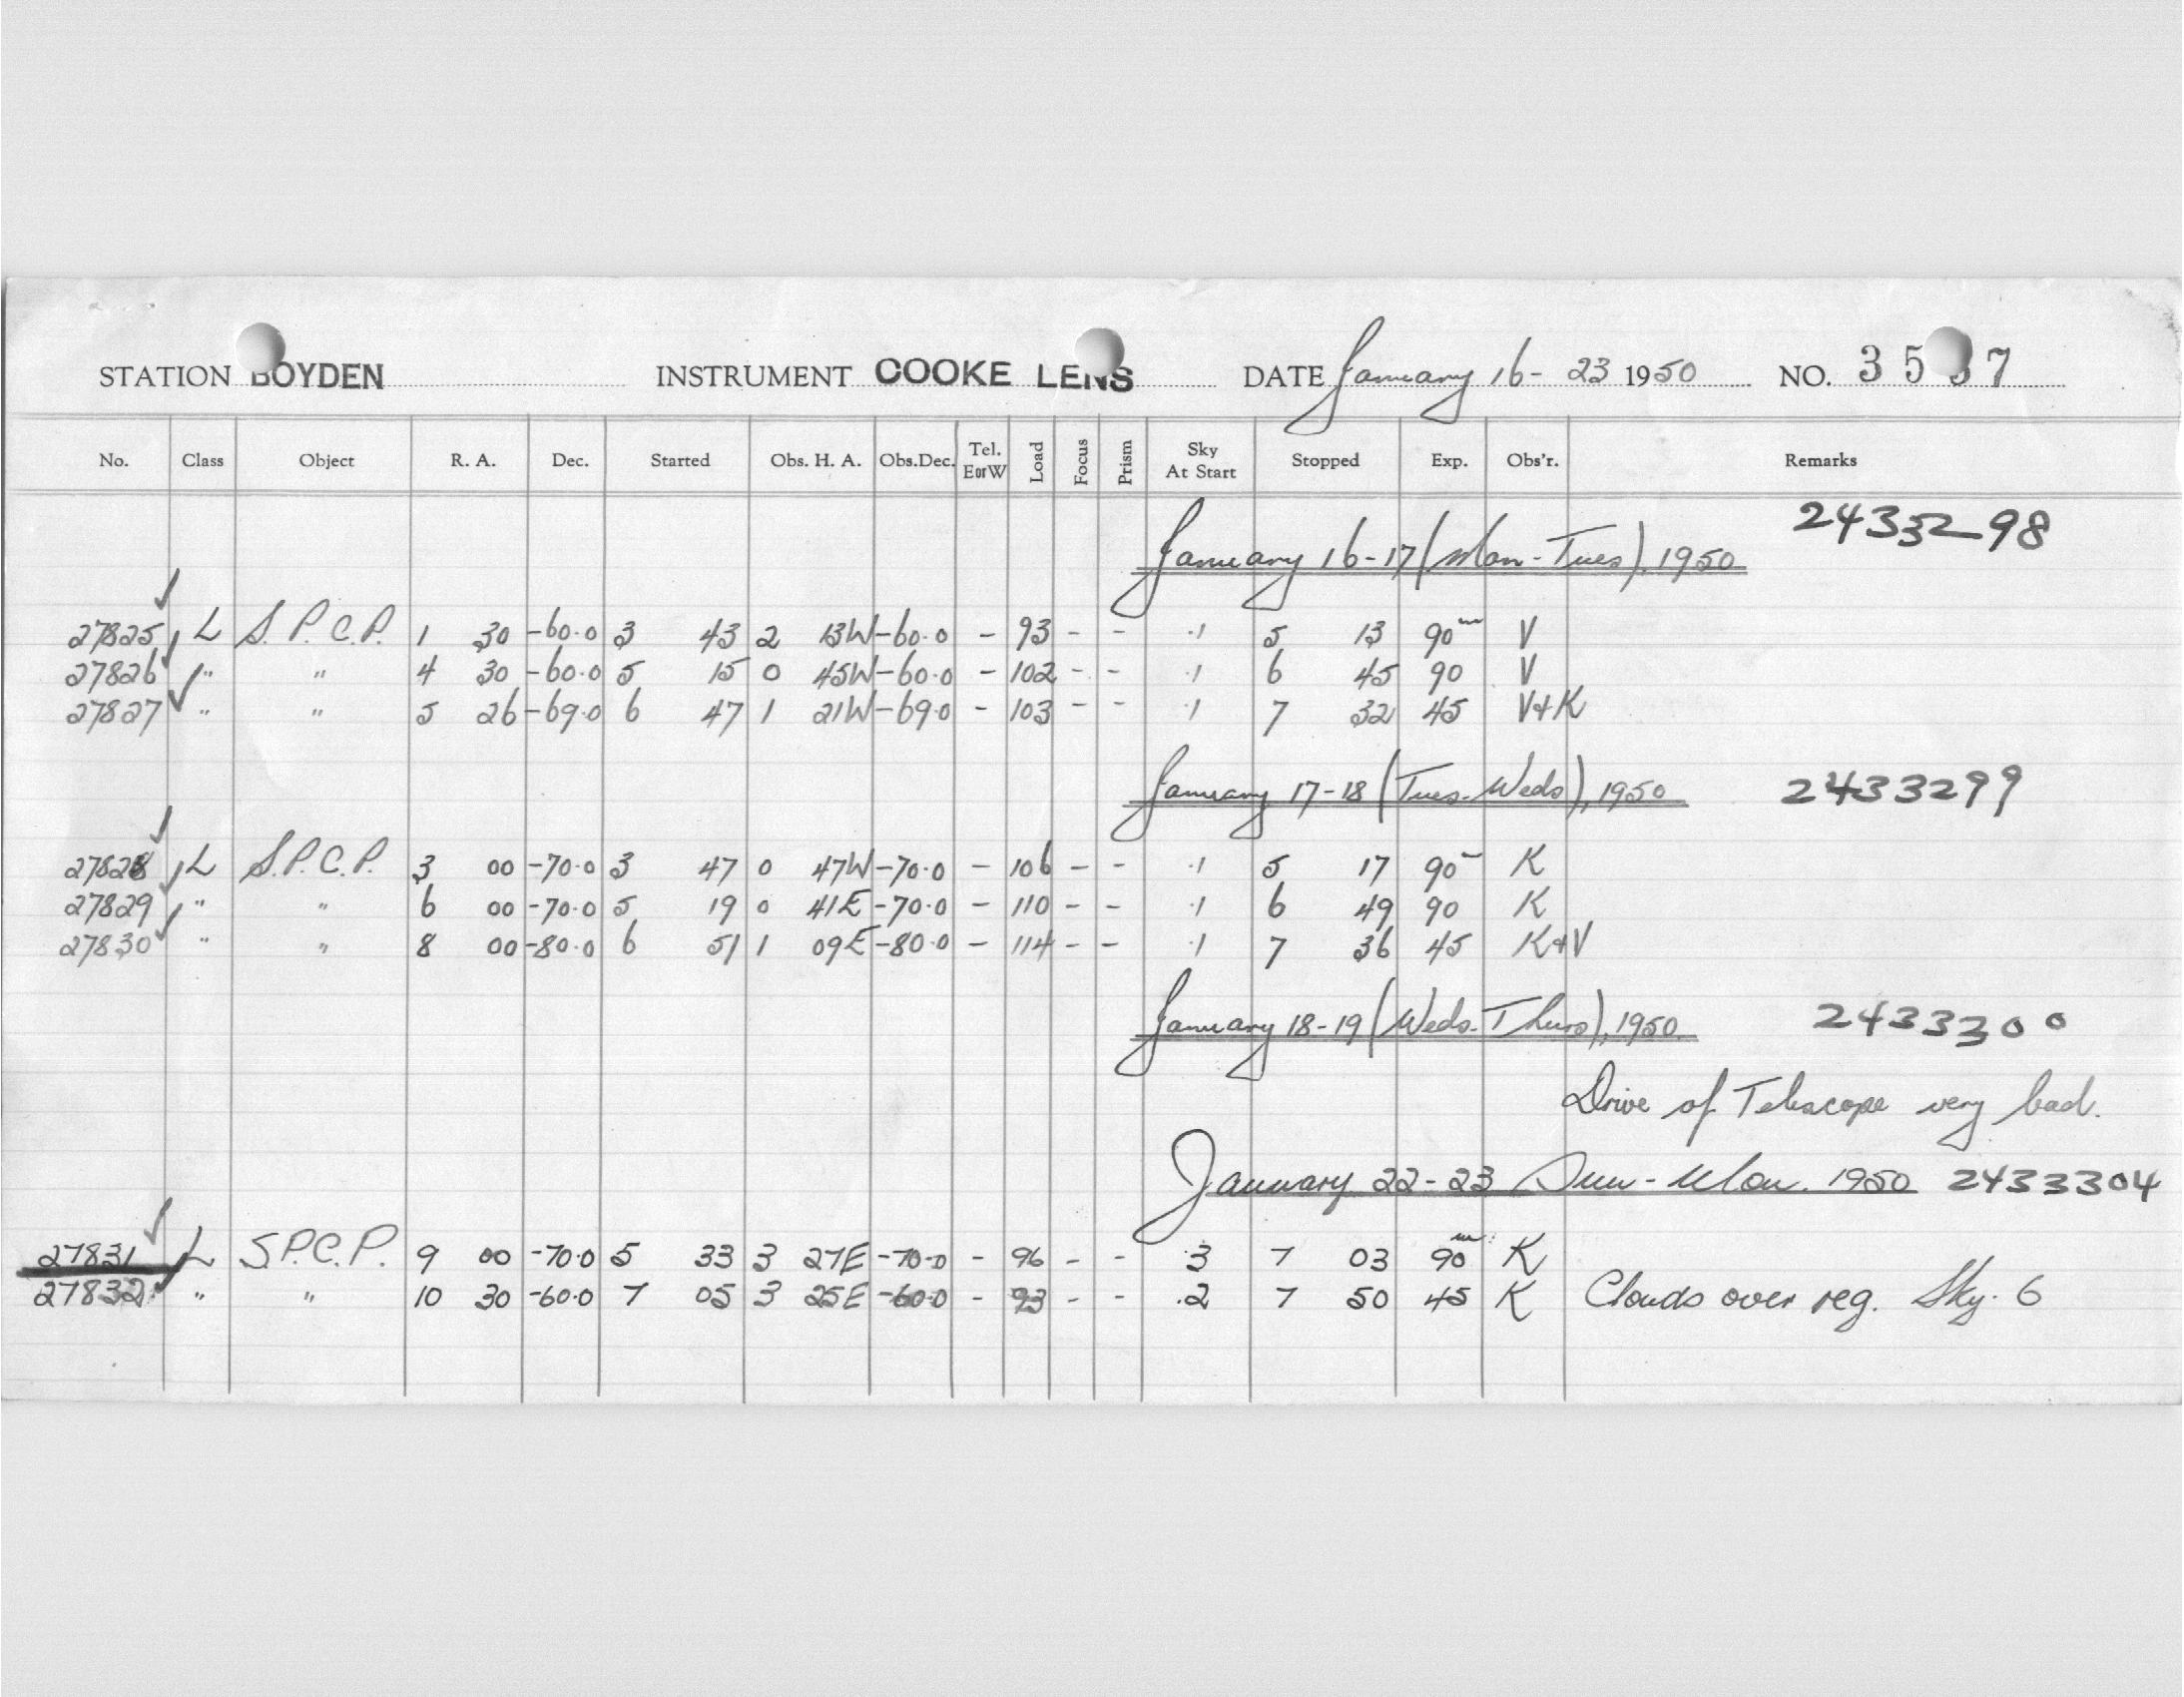 STATION BOYDEN INSTRUMENT COOKE LENS DATE January 16- 23 1950 NO. 3537
No. Class Object R. A. Dec. Started Obs. H. A. Obs.Dec. Tel. E or W Load Focus Prism Sky At Start Stopped Exp. Obs'r. Remarks
January 16-17 (Mon-Tues), 1950 2433298
27825 L S.P.C.P. 1 30 -60.0 3 43 2 13W -60.0 - 93 - - .1 5 13 90m V
27826 " " 4 30 -60.0 5 15 0 45W -60.0 - 102 - - .1 6 45 90 V
27827 " " 5 26 -69.0 6 47 1 21W -69.0 - 103 - - .1 7 32 45 V+K
January 17-18 (Tues-Weds), 1950 2433299
27828 L S.P.C.P. 3 00 -70.0 3 47 0 47W -70.0 - 106 - - .1 5 17 90m K
27829 " " 6 00 -70.0 5 19 0 41E -70.0 - 110 - - .1 6 49 90 K
27830 " " 8 00 -80.0 6 51 1 09E -80.0 - 114 - - .1 7 36 45 K+V
January 18-19 (Weds-Thurs), 1950 2433300
Drive of Telescope very bad.
January 22-23 Sun-Mon. 1950 2433304
27831 L S.P.C.P. 9 00 -70.0 5 33 3 27E -70.0 - 96 - - .3 7 03 90m K
27832 " " 10 30 -60.0 7 05 3 25E -60.0 - 93 - - .2 7 50 45 K Clouds over reg. Sky. 6